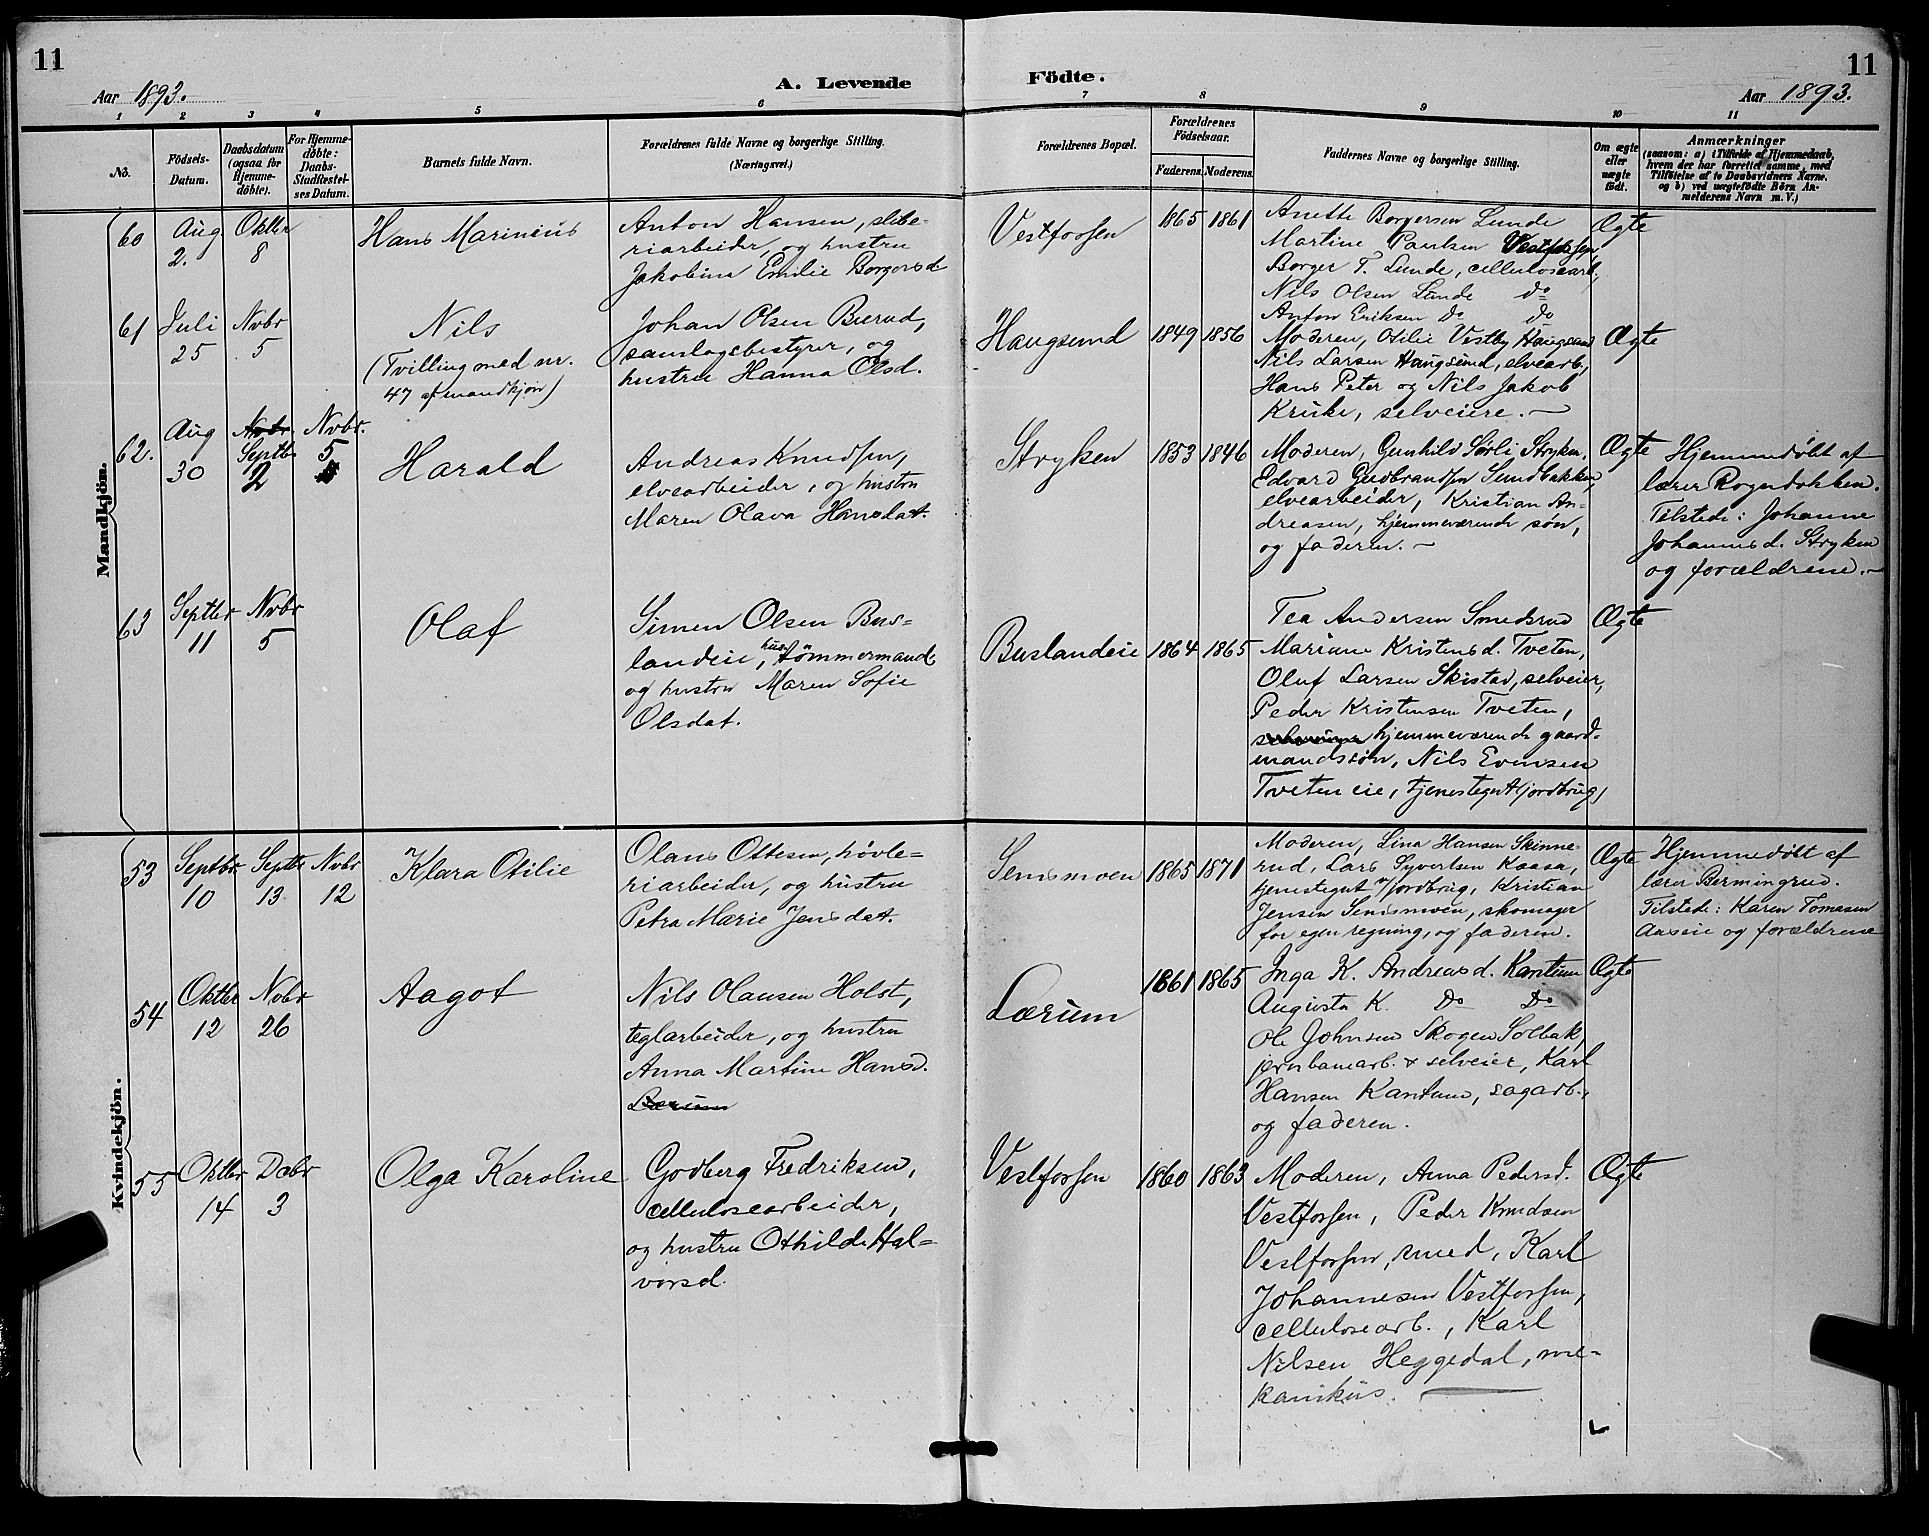 11
Aar 1893.
A. Levende
Födte.
11
Aar 1893.
1 2 3 4 5 6 7 8 9 10 11
No.
Födsels-
Datum.
Daabsdatum
(ogsaa for
Hjemme-
döbte).
For Hjemme-
döbte:
Daabs-
Stadfæstel-
ses Datum.
Barnets fulde Navn.
Forældrenes fulde Navne og borgerlige Stilling.
(Næringsvei.)
Forældrenes Bopæl.
Forældrenes
Födselsaar.
Faderens.
Moderens.
Faddernes Navne og borgerlige Stilling.
Om ægte
eller
uægte
födt.
Anmærkninger
(saasom: a) i Tilfælde af Hjemmedaab,
hvem der har forrettet samme, med
Tilföielse af to Daabsvidners Navne.
og b) ved uægtefödte Börn An-
melderens Navn m. V.)
Mandkjön.
60
Aug
2.
Oktbr
8
Hans Marinius
Anton Hansen, slibe-
riarbeider, og hustru
Jakobine Emilie Borgersd
Vestfossen
1865
1861
Anette Borgersen Lunde
Martine Paulsen Vestfossen,
Borger T. Lunde, cellulosearb.,
Nils Olsen Lunde do
Anton Eriksen do do
Ægte
61
Juli
25
Nvbr
5
Nils
(Tvilling med nr.
47 af mandkjøn)
Johan Olsen Bierud,
samlagsbestyrer, og
hustru Hanna Olsd.
Haugsund
1849
1856
Moderen, Otilie Vestby Haugsund
Nils Larsen Haugsund, elvearb.,
Hans Peter og Nils Jakob
Kruke, selveiere. –
Ægte
62.
Aug
30
Nvbr
Septb
2
Nvbr.
5
Harald
Andreas Knudsen,
elvearbeider, og hustru
Maren Olava Hansdat.
Stryken
1853
1846
Moderen, Gunhild Sørli Stryken,
Edvard Gudbrandsen Sundbakken,
elvearbeider, Kristian An-
dreasen, hjemmeværende søn,
og faderen. –
Ægte
Hjemmedøbt af
lærer Rogndokken.
Tilstede: Johanne
Johannesd. Stryken
og forældrene. –
63
Septbr
11
Nvbr
5
Olaf
Simen Olsen Bus-
landeie, hus tømmermand
og hustru Maren Sofie
Olsdat.
Buslandeie
1864
1865
Tea Andersen Smedsrud
Mariane Kristensd. Tveten,
Oluf Larsen Skistad, selveier,
Peder Kristensen Tveten,
hjemmeværende gaard-
mandssøn, Nils Evensen
Tveten eie, tjenestegut (jordbrug)
Ægte
Kvindekjön.
53
Septbr
10
Septbr
13
Nvbr
12
Klara Otilie
Olaus Ottesen, høvle-
riarbeider, og hustru
Petra Marie Jensdat.
Semsmoen
1865
1871
Moderen, Lina Hansen Skinne-
rud, Lars Syvertsen Kaasa,
tjenestegut v/ jordbrug, Kristian
Jensen Semsmoen, skomager
for egen regning, og faderen.
Ægte
Hjemmedøbt af
lærer Bermingrud.
Tilstede: Karen Tomasen
Aaseie og forældrene
54
Oktbr
12
Nvbr
26
Aagot
Nils Olausen Holst,
teglarbeider, og hustru
Anna Martine Hansd.
Lærum
Lærum
1861
1865
Inga K. Andreasd. Kantum
Augusta K. Do Do
Ole Johnsen Skogen Solbak,
jernbanearb. & selveier, Karl
Hansen Kantum, sagarb.,
og faderen.
Ægte
55
Oktbr
14
Dcbr
3
Olga Karoline
Godberg Fredriksen,
cellulosearbeider,
og hustru Othilde Hal-
vorsd.
Vestfossen
1860
1863
Moderen, Anna Pedersd.
Vestfossen, Peder Knudsen
Vestfossen, smed, Karl
Johannesen Vestfossen,
cellulosearb., Karl
Nilsen Heggedal, me-
kanikus.
Ægte